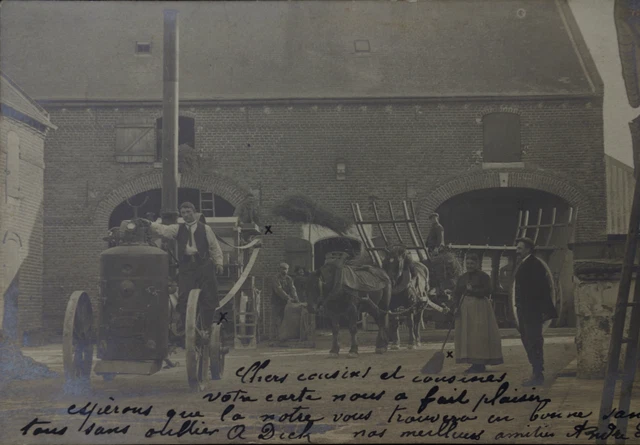 Chers cousins et cousines
votre carte nous a fait plaisir
espérons que la notre vous trouvera en bonne san
tous sans oublier A Dick nos meilleurs amitiés
x
x
x